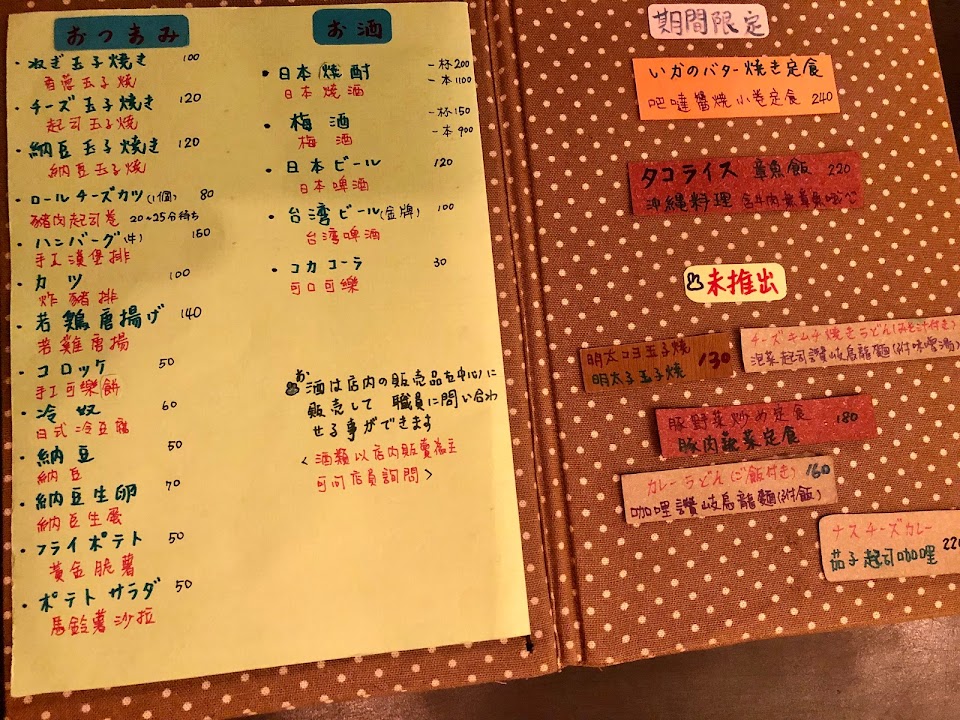 おつまみ
・ねぎ玉子焼き 100
香蔥玉子燒
・チーズ玉子焼き 120
起司玉子燒
・納豆玉子焼き 120
納豆玉子燒
・ロールチーズカツ(1個) 80
豬肉起司卷 20~25分待ち
・ハンバーグ(牛) 150
手工漢堡排
・カツ 100
炸豬排
・若鶏唐揚げ 140
若雞唐揚
・コロッケ 50
手工可樂餅
・冷奴 60
日式冷豆腐
・納豆 50
納豆
・納豆生卵 70
納豆生蛋
・フライポテト 50
黃金脆薯
・ポテトサラダ 50
馬鈴薯沙拉
お酒
・日本焼酎 一杯200
日本燒酒 一本1100
・梅酒 一杯150
梅酒 一本900
・日本ビール 120
日本啤酒
・台湾ビール(金牌) 100
台湾啤酒
・コカコーラ 30
可口可樂
お酒は店内の販売品を中心に
販売して 職員に問い合わ
せる事ができます
<酒類以店內販賣為主
可向店員詢問>
期間限定
いかのバター焼き定食
吧噠醬燒小卷定食 240
タコライス 章魚飯 220
沖縄料理 含牛肉無章魚喔
未推出
明太コヨ玉子焼 130
明太子玉子燒
チーズキムチ焼きうどん(みそ汁付き)
泡菜起司讚岐烏龍麵(附味噌湯)
豚野菜炒め定食 180
豚肉蔬菜定食
カレーうどん(ご飯付き) 160
咖哩讚岐烏龍麵(附飯)
ナスチーズカレー
茄子起司咖哩 220